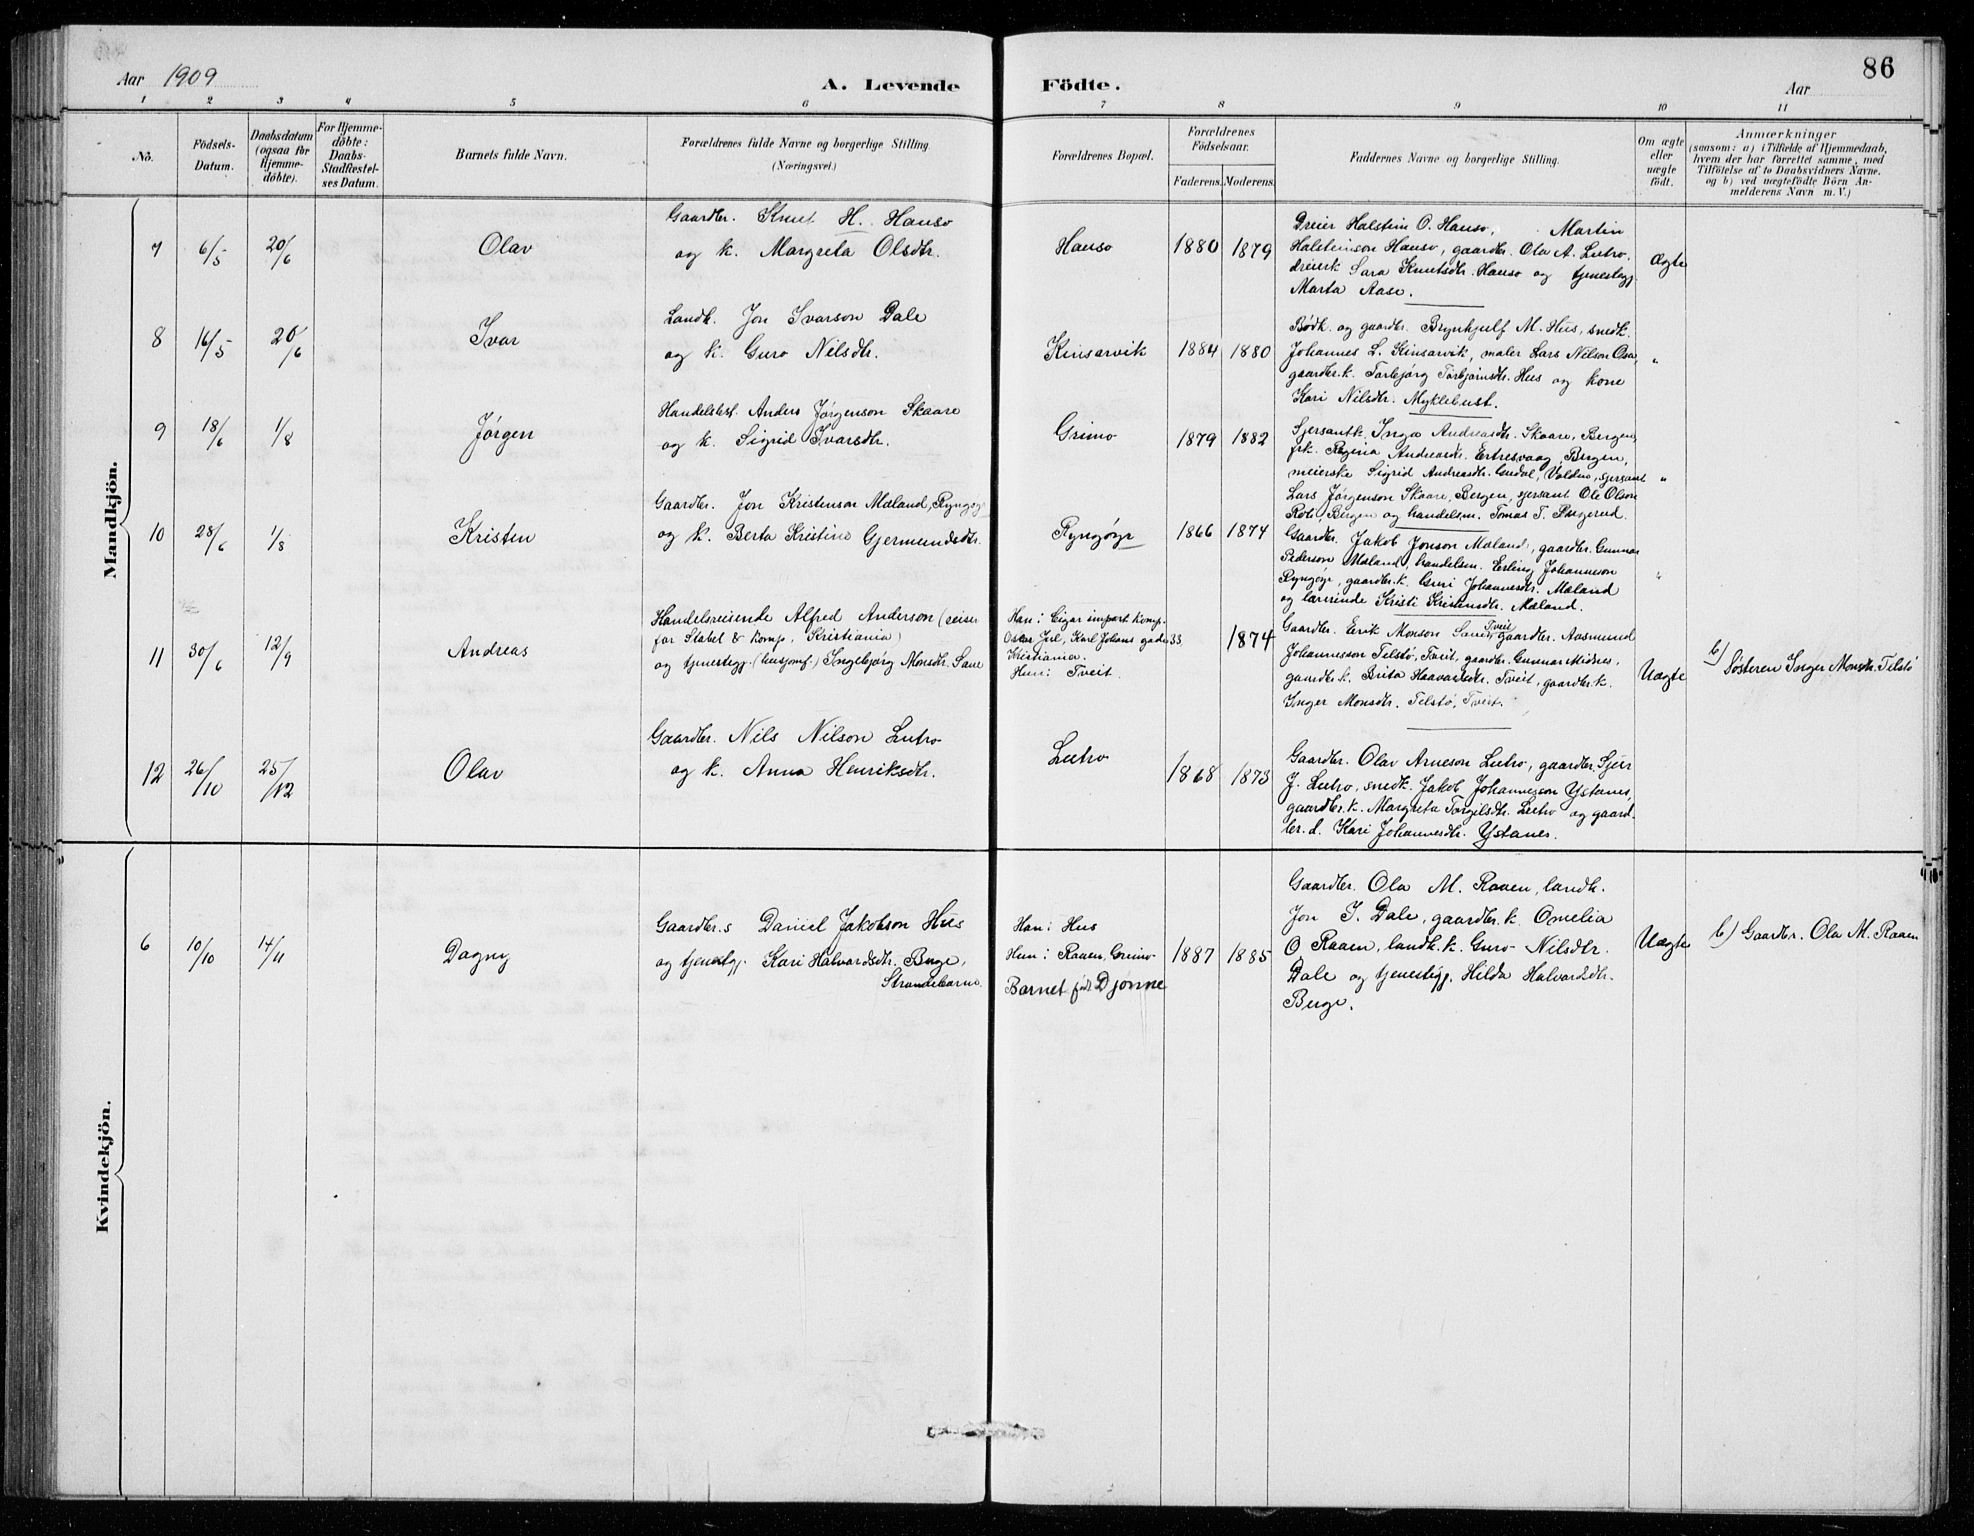 86
Aar 1909
A. Levende Födte.
Aar
1 2 3 4 5 6 7 8 9 10 11
No.
Födsels-Datum.
Daabsdatum (ogsaa for Hjemme-döbte).
For Hjemme-döbte: Daabs-Stadfæstel-ses Datum.
Barnets fulde Navn.
Forældrenes fulde Navne og borgerlige Stilling.
(Næringsvei.)
Forældrenes Bopæl.
Forældrenes Födselsaar.
Faderens. Moderens.
Faddernes Navne og borgerlige Stilling.
Om ægte eller uægte födt.
Anmærkninger
(saasom: a) i Tilfælde af Hjemmedaab,
hvem der har forrettet samme, med
Tilföielse af to Daabsvidners Navne.
og b) ved uægtefödte Börn An-
melderens Navn m. V.)
Mandkjön.
7 6/5 20/6 Olav
Gaardbr. Knut H. Hauso
og k. Margreta Olsdtr.
Hauso 1880 1879
Dreier Halstein O. Hauso, Martin
Halsteinson Hauso, gaardbr. Ola A. Lutro,
dreierk Sara Knutsdtr. Hauso og tjenestegj.
Marta Aase.
Ægte
8 16/5 20/6 Ivar
Landh. Jon Ivarson Dale
og k. Guro Nilsdtr.
Kinsarvik 1884 1880
Bødk. og gaardbr. Brynhjulf M. Hus, snedk.
Johannes L. Kinsarvik, maler Lars Nilson Osa,
gaardbr.k. Torbjørg Torbjørnsdtr. Hus og kone
Kari Nilsdtr. Myklebust.
"
9 18/6 1/8 Jørgen
Handelsbest. Anders Jørgenson Skaare
og k. Sigrid Ivarsdtr.
Grimo 1879 1882
Sjersantk. Inga Andreasdtr. Skaare, Bergen,
frk. Regina Andreasdtr. Ertresvaag, Bergen,
meierske Sigrid Andreasdtr. Gudal, Volden, sjersant
Lars Jørgenson Skaare, Bergen, sjersant Ole Olson
Bergen og handelsm. Tomas T.
"
10 28/6 1/8 Kristen
Gaardbr. Jon Kristenson Mæland, Ryngøy
og k. Berta Kristine Gjermundsdtr.
Ryngøy 1866 1874
Gaardbr. Jakob Jonson Mæland, gaardbr. Gunnar
Pederson Mæland, handelsm. Erling Johanneson
Ryngøy, gaardbr.k. Guri Johannesdtr. Mæland
og lærerinde Kristi Kristensdtr. Mæland.
"
11 30/6 12/9 Andreas
Handelsreisende Alfred Anderson (reiser
for Stabel & komp, Kristiania)
og tjenestegj. (husjomf.) Ingebjørg Monsdtr. Sane
Han: Cigar import komp.
Karl Johans gade 33
Kristiania.
Hun: Tveit.
1874
Gaardbr. Erik Monson Sane, Tveit gaardbr. Aasmund
Johanneson Telstø, Tveit, gaardbr. Gunnar Midnes,
gaardbr.k. Brita Haavardsdtr. Tveit, gaardbr.k.
Inger Monsdtr. Telstø, Tveit.
Uægte
b) Søsteren Inger Monsdtr. Telstø
12 26/10 25/12 Olav
Gaardbr. Nils Nilson Lutro
og k. Anna Henriksdtr.
Lutro 1868 1873
Gaardbr. Olav Arneson Lutro, gaardbr. Sjur
J. Lutro, snedk. Jakob Johanneson Ystanes,
gaardbr.k. Margreta Torgilsdtr. Lutro og gaard-
br.d. Kari Johannesdtr. Ystanes.
Kvindekjön.
6 10/10 14/11 Dagny
Gaardbr.s Daniel Jakobson Hus
og tjenestegj. Kari Halvardsdtr. Berge,
Strandebarm.
Han: Hus
Hun: Raaen, Grimo
Barnet født Djønne
1887 1885
Gaardbr. Ola M. Raaen, landh.
Jon I. Dale, gaardbr.k. Omelia
O. Raaen, landh.k. Guro Nilsdtr.
Dale og tjenestegj. Hilda Halvardsdtr.
Berge.
Uægte
b) Gaardbr. Ola M. Raaen